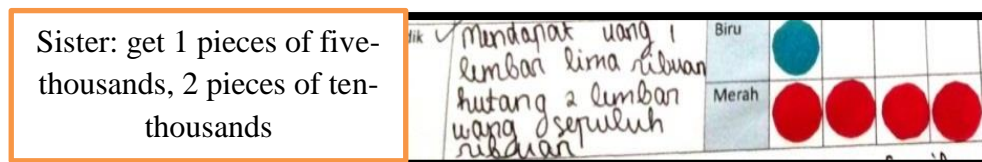 Sister: get 1 pieces of five-
thousands, 2 pieces of ten-
thousands
dik
Mendapat uang 1
lembar lima ribuan
hutang 2 lembar
uang sepuluh
ribuan
Biru
Merah